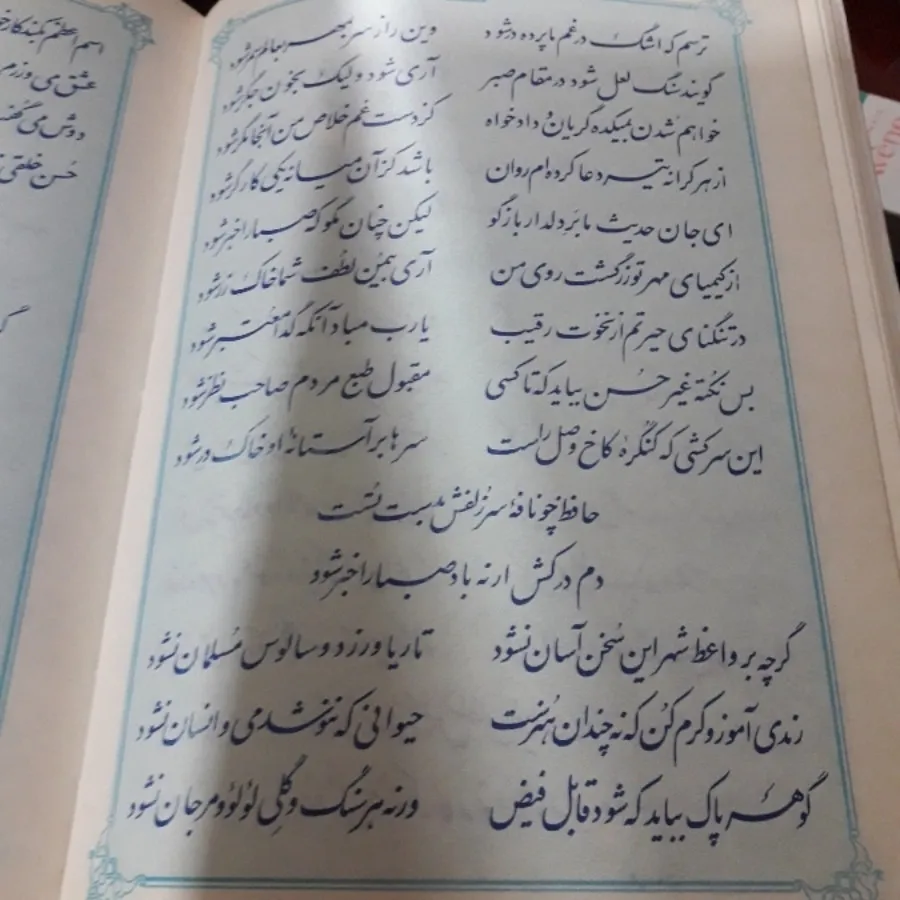 ترسم که اشک در غم ما پرده در شود وین راز سر بمهر بعالم سمر شود
گویند سنگ لعل شود در مقام صبر آری شود ولیک بخون جگر شود
خواهم شدن بمیکده گریان و دادخواه کز دست غم خلاص من آنجا مگر شود
از هر کرانه تیر دعا کرده‌ام روان باشد کزآن میانه یکی کارگر شود
ای جان حدیث ما بر دلدار بازگو لیکن چنان مگو که صبا را خبر شود
از کیمیای مهر تو زر گشت روی من آری بیمن لطف شما خاک زر شود
در تنگنای حیرتم از نخوت رقیب یارب مباد آنکه گدا معتبر شود
بس نکته غیر حسن بباید که تا کسی مقبول طبع مردم صاحب نظر شود
این سرکشی که کنگرهٔ کاخ وصل راست سرها بر آستانهٔ او خاک در شود
حافظ چو نافهٔ سر زلفش بدست تست
دم درکش ارنه باد صبا را خبر شود
گرچه بر واعظ شهر این سخن آسان نشود تا ریا ورزد و سالوس مُسلمان نشود
رندی آموز و کرم کُن که نه چندان هُنرست حیوانی که ننوشد می و انسان نشود
گوهر پاک بباید که شود قابل فیض ورنه هر سنگ و گِلی لؤلؤ و مرجان نشود
اسم اعظم بکند کار خو
عشق می ورزم
دوش می گفت
حُسن خلقی